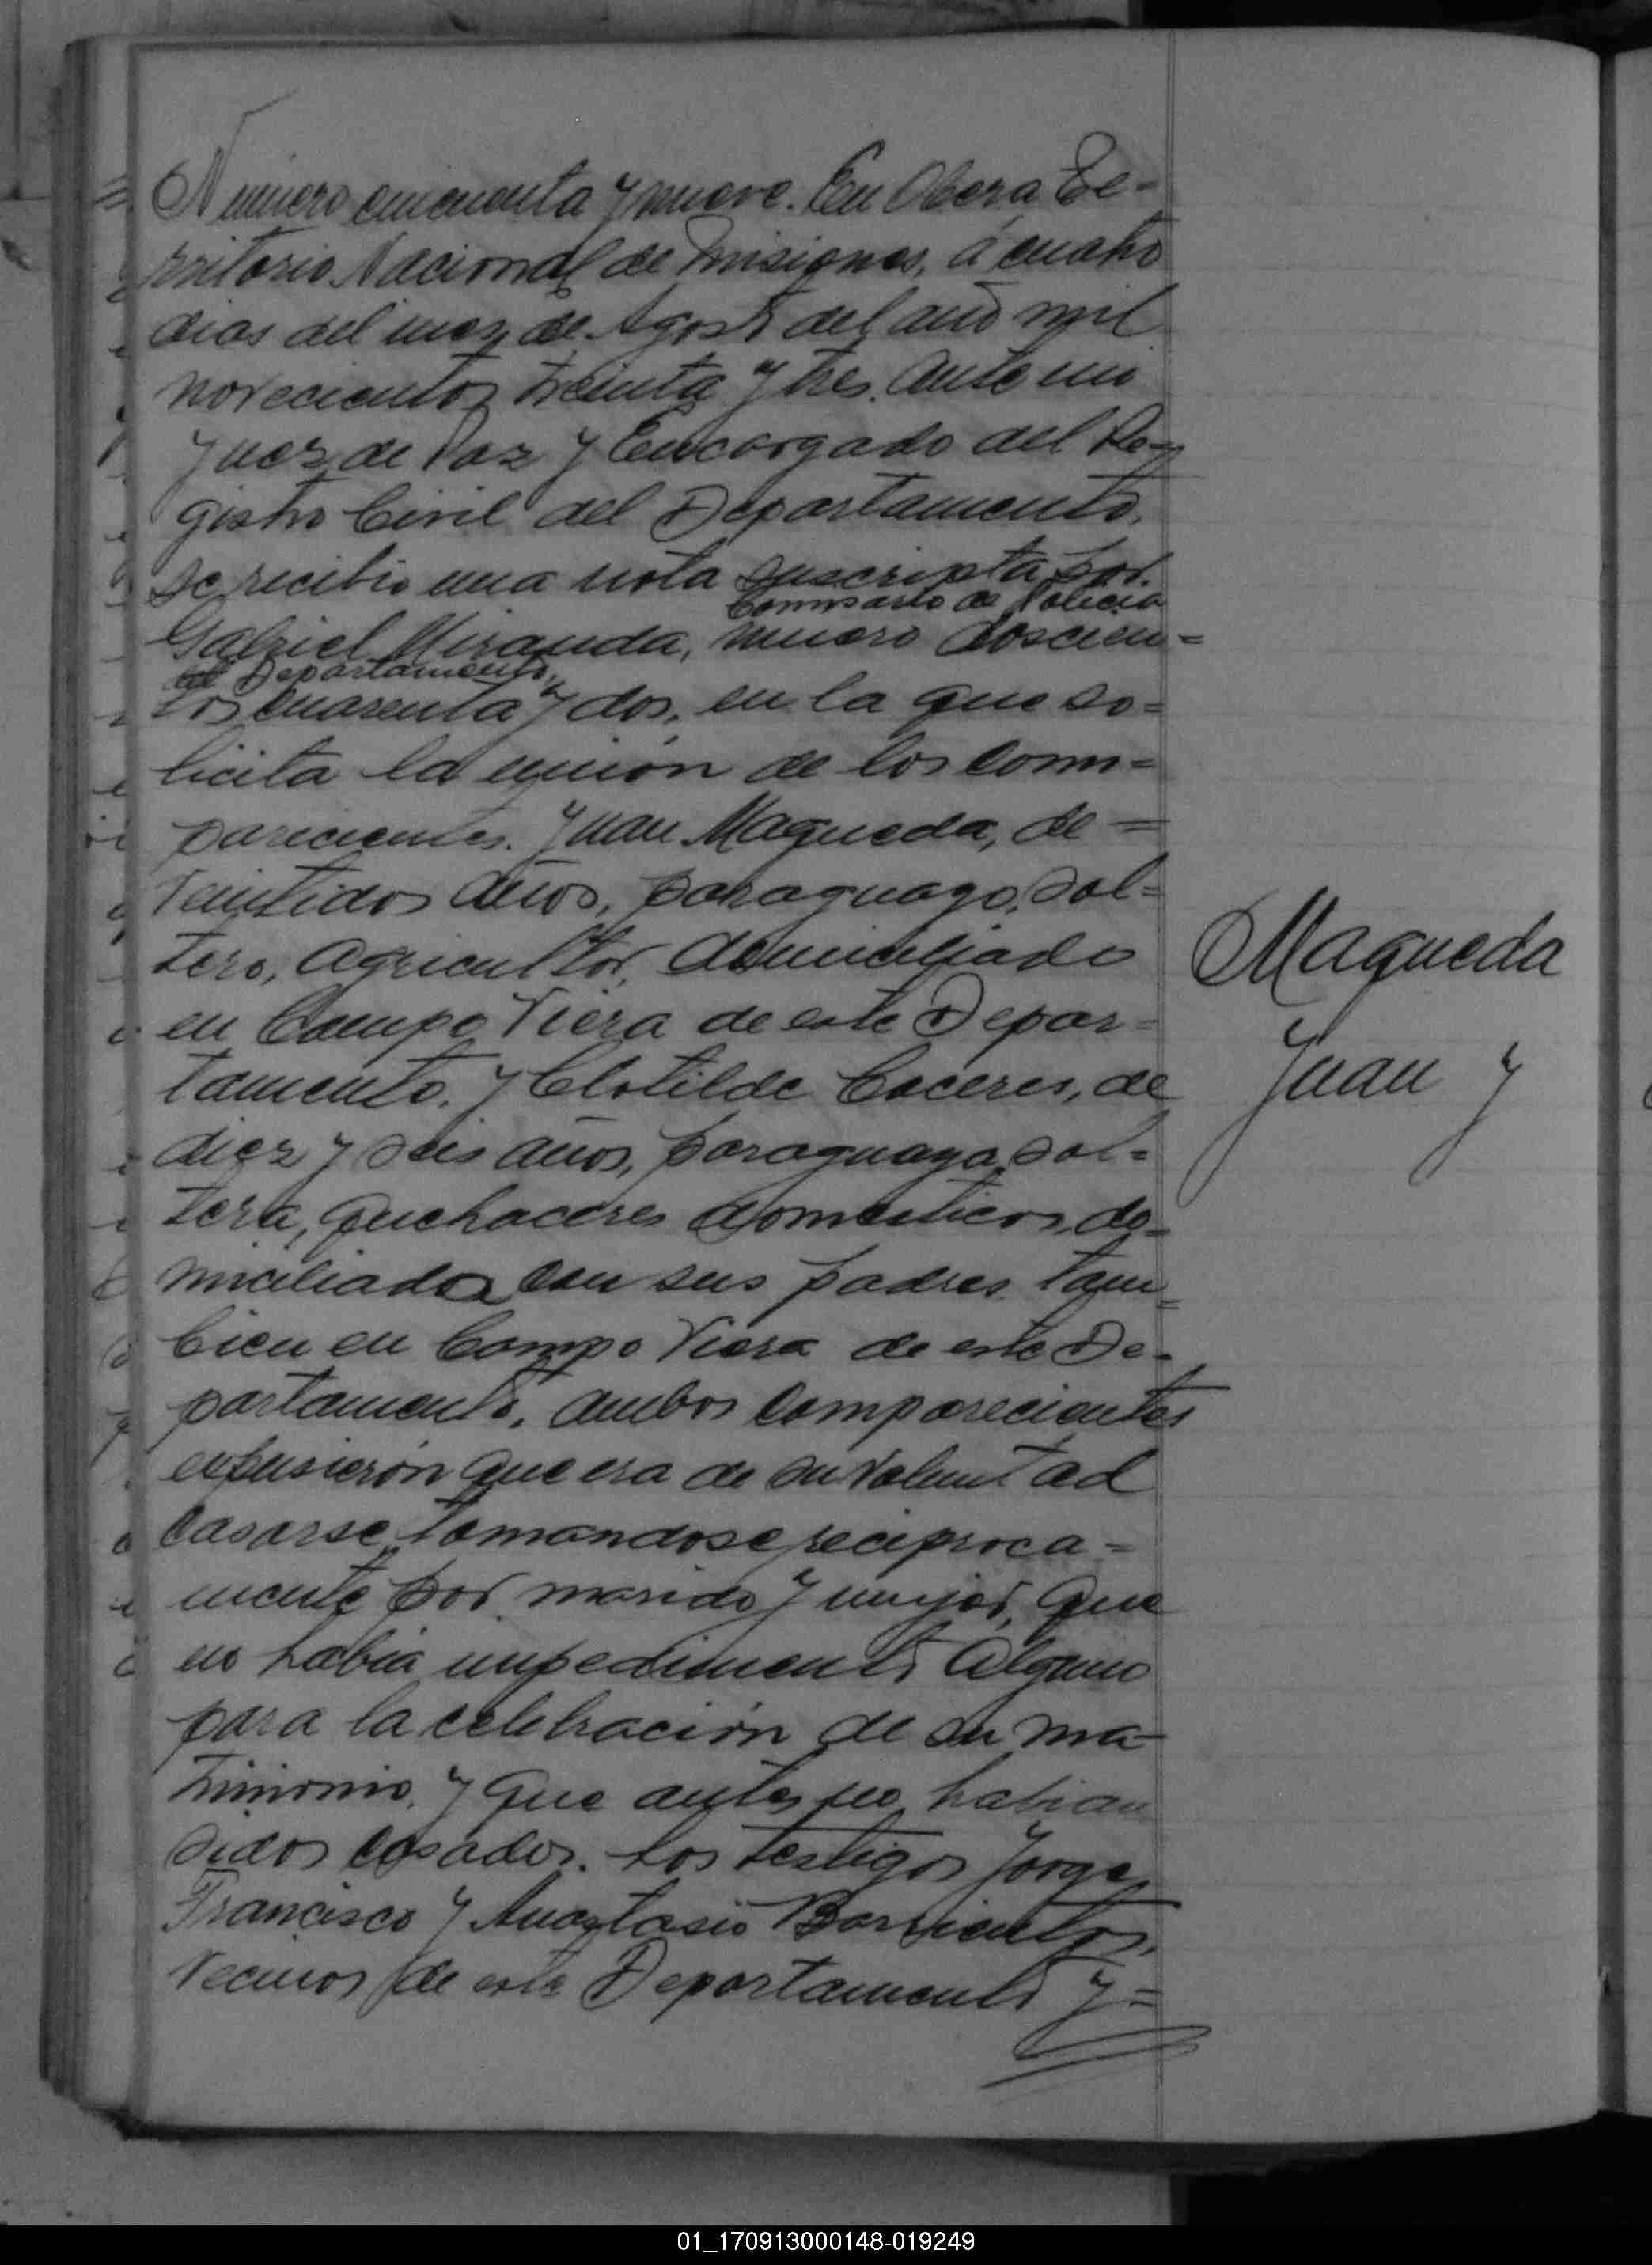 Número cincuenta y nueve. En Obera, Te-
rritorio Nacional de Misiones, a cuatro
dias del mes de Agosto del año mil
novecientos treinta y tres. Ante mi
Juez de Paz y Encargado del Re-
gistro Civil del Departamento,
se recibio una nota suscripta por.
Comisario de Policia
Gabriel Miranda, numero doscien-
del Departamento,
tos cuarenta y dos, en la que so-
licita la union de los com-
parecientes. Juan Maqueda, de -
veintidos años, paraguayo, sol-
tero, agricultor, domiciliado
en Campo Viera de este Depar-
tamento. y Clotilde Caceres, de
diez y seis años, paraguaya, sol-
tera, quehaceres domesticos, do-
miciliada con sus padres tam-
bien en Campo Viera de este De-
partamento. Ambos comparecientes
expusieron que era de su voluntad
casarse tomandose reciproca-
mente por marido y mujer, que
no habia impedimento alguno
para la celebración de su ma-
trimonio, y que antes no habian
sidos casados. Los testigos Jorge
Francisco y Anastasio Barrientos,
vecinos de este Departamento y=
Maqueda
Juan y
01_170913000148-019249